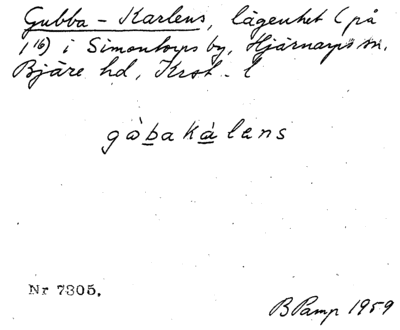 Gubba-Karlens, lägenhet (på
1¹⁶) i Simontorps by, Hjärnarps sn.
Bjäre hd, Krst. l
gòbakàlens
Nr 7305.
B Pamp 1959